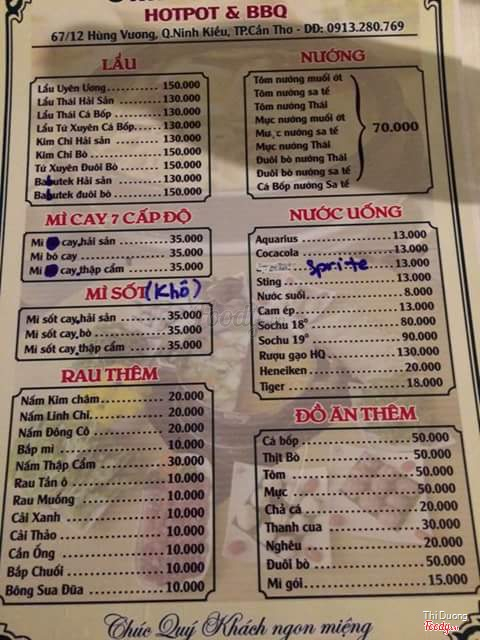 HOTPOT & BBQ
67/12 Hùng Vương, Q.Ninh Kiều, TP.Cần Thơ - DĐ: 0913.280.769
LẨU
Lẩu Uyên Ương 150.000
Lẩu Thái Hải Sản 130.000
Lẩu Thái Cá Bốp 130.000
Lẩu Tứ Xuyên Cá Bốp 130.000
Kim Chi Hải Sản 130.000
Kim Chi Bò 150.000
Tứ Xuyên Đuôi Bò 150.000
Babutek Hải sản 130.000
Babutek đuôi bò 150.000
NƯỚNG
Tôm nướng muối ớt
Tôm nướng sa tế
Tôm nướng Thái
Mực nướng muối ớt
Mực nướng sa tế
Mực nướng Thái
Đuôi bò nướng Thái
Đuôi bò nướng sa tế
Cá Bốp nướng Sa tế
70.000
MÌ CAY 7 CẤP ĐỘ
Mì cay hải sản 35.000
Mì bò cay 35.000
Mì cay thập cẩm 35.000
MÌ SỐT (Khô)
Mì sốt cay hải sản 35.000
Mì sốt cay bò 35.000
Mì sốt cay thập cẩm 35.000
RAU THÊM
Nấm Kim châm 20.000
Nấm Linh Chi 20.000
Nấm Đông Cô 20.000
Bắp mì 10.000
Nấm Thập Cẩm 30.000
Rau Tần ô 10.000
Rau Muống 10.000
Cải Xanh 10.000
Cải Thảo 10.000
Cần Ống 10.000
Bắp Chuối 10.000
Bông Sua Đũa 10.000
NƯỚC UỐNG
Aquarius 13.000
Cocacola 13.000
Sprite 13.000
Sting 13.000
Nước suối 8.000
Cam ép 13.000
Sochu 18° 80.000
Sochu 19° 90.000
Rượu gạo HQ 130.000
Heneiken 20.000
Tiger 18.000
ĐỒ ĂN THÊM
Cá bốp 50.000
Thịt Bò 50.000
Tôm 50.000
Mực 50.000
Chả cá 20.000
Thanh cua 30.000
Nghêu 20.000
Đuôi bò 50.000
Mì gói 15.000
Chúc Quý Khách ngon miệng
Thi Duong
Foody.vn